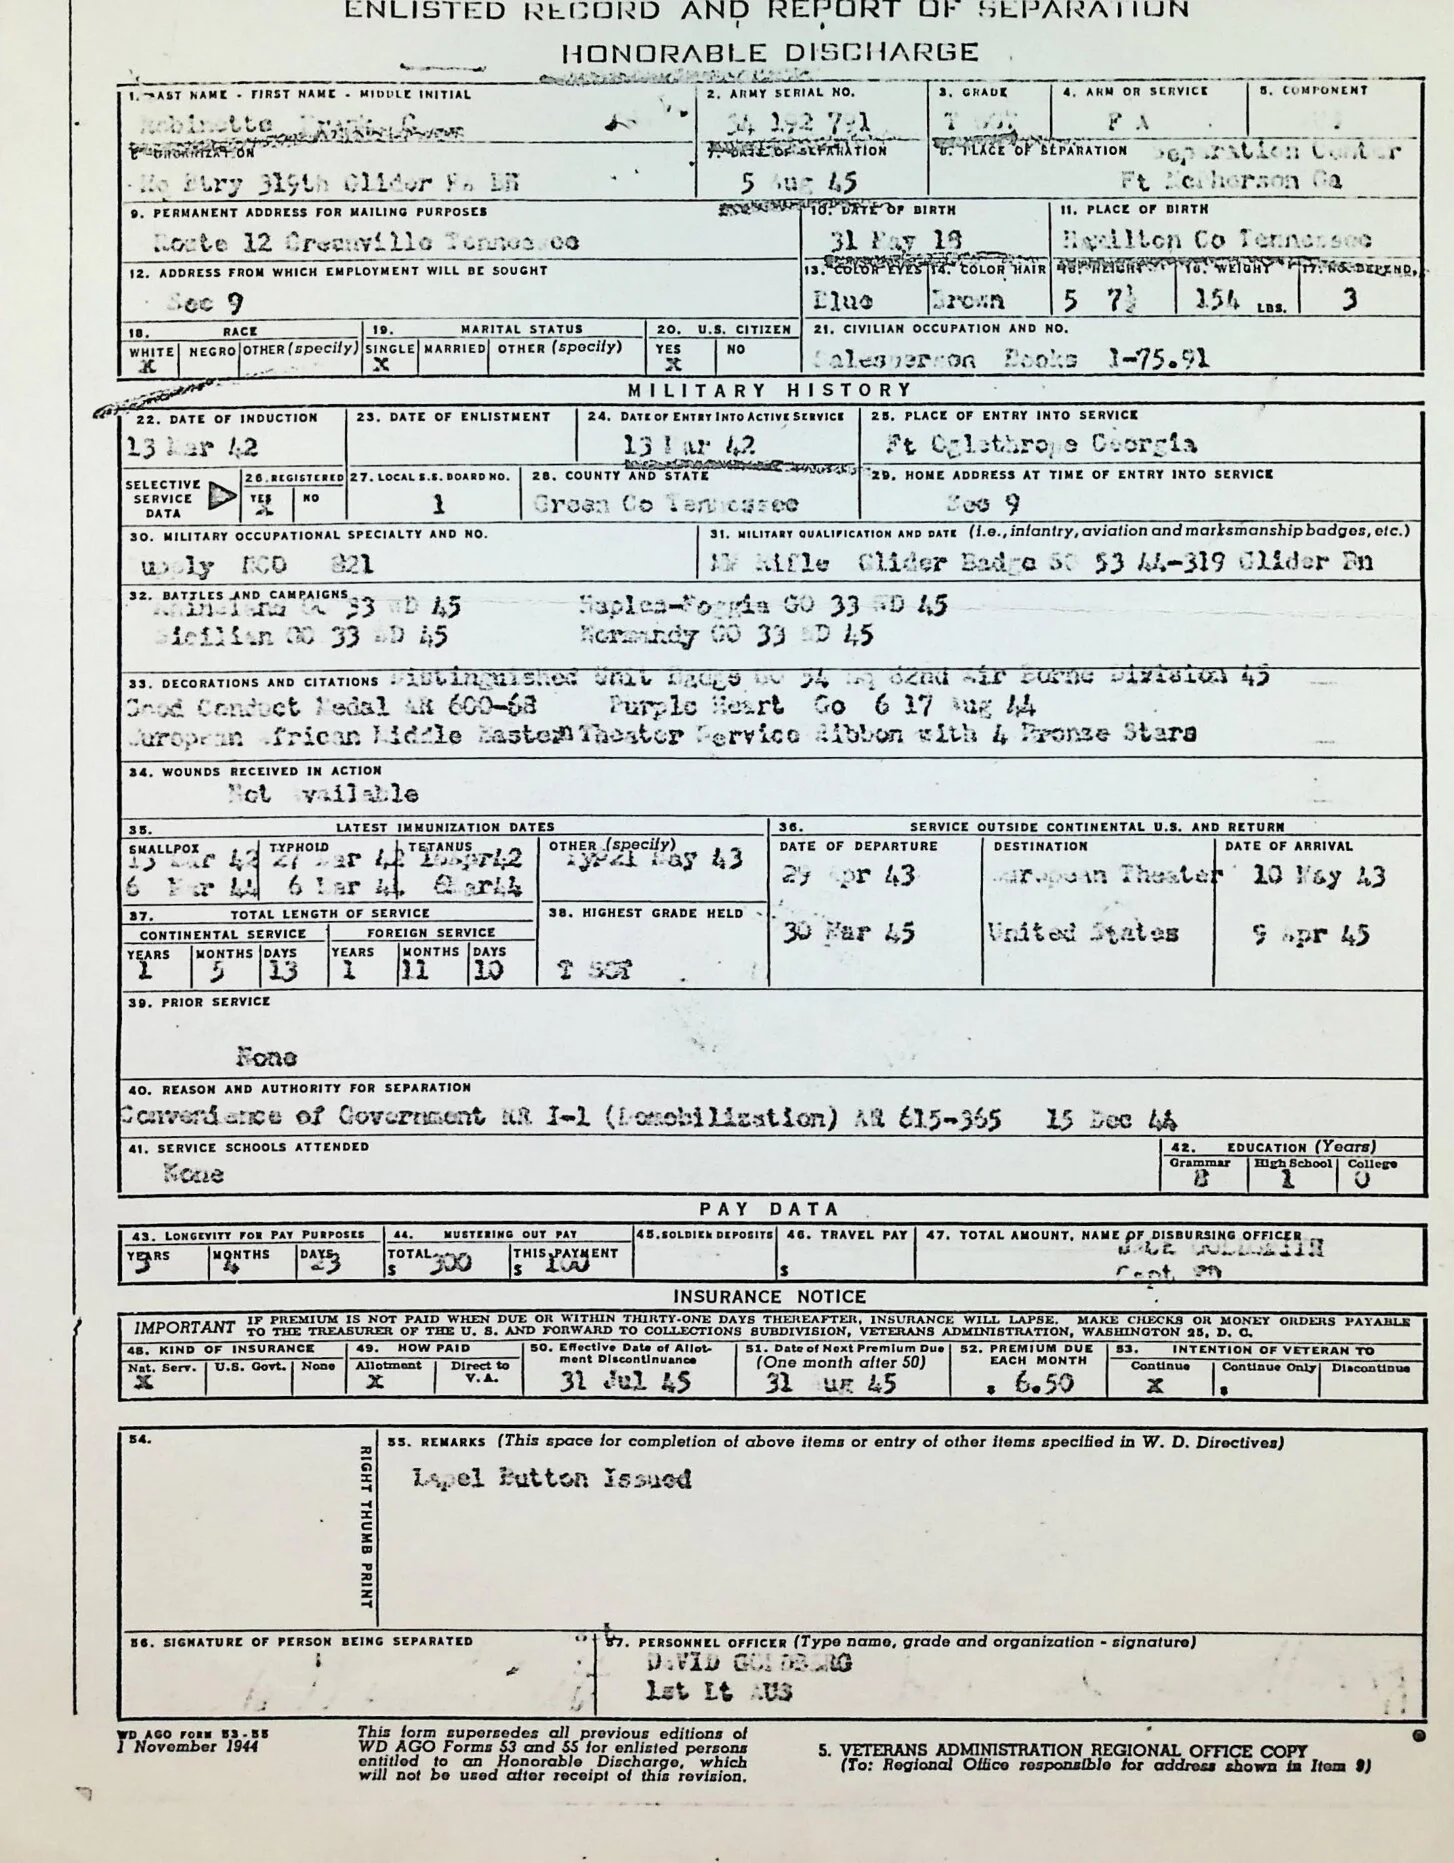 ENLISTED RECORD AND REPORT OF SEPARATION
HONORABLE DISCHARGE
1. LAST NAME - FIRST NAME - MIDDLE INITIAL
2. ARMY SERIAL NO.
3. GRADE
4. ARM OR SERVICE
5. COMPONENT
Robinette
34 192 791
T SGT
F A
6. ORGANIZATION
7. DATE OF SEPARATION
8. PLACE OF SEPARATION
Separation Center
Hq Btry 319th Glider FA BN
5 Aug 45
Ft McPherson Ga
9. PERMANENT ADDRESS FOR MAILING PURPOSES
10. DATE OF BIRTH
11. PLACE OF BIRTH
Route 12 Greenville Tennessee
31 May 18
Hamilton Co Tennessee
12. ADDRESS FROM WHICH EMPLOYMENT WILL BE SOUGHT
13. COLOR EYES
14. COLOR HAIR
15. HEIGHT
16. WEIGHT
17. NO. DEPEND.
See 9
Blue
Brown
5 7½
154 LBS.
3
18. RACE
19. MARITAL STATUS
20. U.S. CITIZEN
21. CIVILIAN OCCUPATION AND NO.
WHITE NEGRO OTHER (specify) SINGLE MARRIED OTHER (specify) YES NO
X X X
Salesperson Books 1-75.91
MILITARY HISTORY
22. DATE OF INDUCTION
23. DATE OF ENLISTMENT
24. DATE OF ENTRY INTO ACTIVE SERVICE
25. PLACE OF ENTRY INTO SERVICE
13 Mar 42
13 Mar 42
Ft Oglethrope Georgia
SELECTIVE SERVICE DATA
26. REGISTERED
YES NO
X
27. LOCAL S.S. BOARD NO.
28. COUNTY AND STATE
29. HOME ADDRESS AT TIME OF ENTRY INTO SERVICE
1
Green Co Tennessee
See 9
30. MILITARY OCCUPATIONAL SPECIALTY AND NO.
31. MILITARY QUALIFICATION AND DATE (i.e., infantry, aviation and marksmanship badges, etc.)
upply NCO 821
Rifle Glider Badge SO 53 44-319 Glider Bn
32. BATTLES AND CAMPAIGNS
Rhineland GO 33 WD 45 Naples-Foggia GO 33 WD 45
Sicilian GO 33 WD 45 Normandy GO 33 WD 45
33. DECORATIONS AND CITATIONS Distinguished Unit Badge GO 54 Hq 82nd Air Borne Division 45
Good Conduct Medal AR 600-68 Purple Heart Go 6 17 Aug 44
European African Middle Eastern Theater Service Ribbon with 4 Bronze Stars
34. WOUNDS RECEIVED IN ACTION
Not Available
35. LATEST IMMUNIZATION DATES
36. SERVICE OUTSIDE CONTINENTAL U.S. AND RETURN
SMALLPOX TYPHOID TETANUS OTHER (specify)
DATE OF DEPARTURE DESTINATION DATE OF ARRIVAL
13 Mar 42 27 Mar 42 16Apr42 Typ21 May 43
29 Apr 43 European Theater 10 May 43
6 Mar 44 6 Mar 44 6Mar44
37. TOTAL LENGTH OF SERVICE
38. HIGHEST GRADE HELD
CONTINENTAL SERVICE FOREIGN SERVICE
30 Mar 45 United States 9 Apr 45
YEARS MONTHS DAYS YEARS MONTHS DAYS
1 5 13 1 11 10
T SGT
39. PRIOR SERVICE
None
40. REASON AND AUTHORITY FOR SEPARATION
Convenience of Government RR I-1 (Demobilization) AR 615-365 15 Dec 44
41. SERVICE SCHOOLS ATTENDED
42. EDUCATION (Years)
None
Grammar High School College
8 1 0
PAY DATA
43. LONGEVITY FOR PAY PURPOSES
44. MUSTERING OUT PAY
45. SOLDIER DEPOSITS
46. TRAVEL PAY
47. TOTAL AMOUNT, NAME OF DISBURSING OFFICER
YEARS MONTHS DAYS TOTAL THIS PAYMENT
3 4 23 $ 300 $ 100 $
Capt FD
INSURANCE NOTICE
IMPORTANT IF PREMIUM IS NOT PAID WHEN DUE OR WITHIN THIRTY-ONE DAYS THEREAFTER, INSURANCE WILL LAPSE. MAKE CHECKS OR MONEY ORDERS PAYABLE
TO THE TREASURER OF THE U. S. AND FORWARD TO COLLECTIONS SUBDIVISION, VETERANS ADMINISTRATION, WASHINGTON 25, D. C.
48. KIND OF INSURANCE
49. HOW PAID
50. Effective Date of Allotment Discontinuance
51. Date of Next Premium Due (One month after 50)
52. PREMIUM DUE EACH MONTH
53. INTENTION OF VETERAN TO
Nat. Serv. U.S. Govt. None Allotment Direct to V.A.
Continue Continue Only Discontinue
X X 31 Jul 45 31 Aug 45 $ 6.50 X $
54.
RIGHT THUMB PRINT
55. REMARKS (This space for completion of above items or entry of other items specified in W. D. Directives)
Lapel Button Issued
56. SIGNATURE OF PERSON BEING SEPARATED
57. PERSONNEL OFFICER (Type name, grade and organization - signature)
DAVID GOLDBERG
1st Lt AUS
WD AGO FORM 53-55
1 November 1944
This form supersedes all previous editions of
WD AGO Forms 53 and 55 for enlisted persons
entitled to an Honorable Discharge, which
will not be used after receipt of this revision.
5. VETERANS ADMINISTRATION REGIONAL OFFICE COPY
(To: Regional Office responsible for address shown in Item 9)